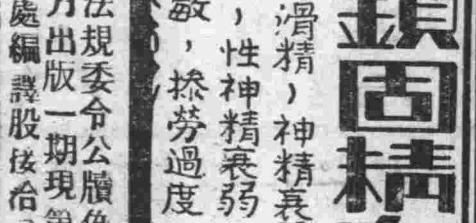 鎖固精
滑精，神精衰
，性神精衰弱
敏，操勞過度
法規委令公牘
月出版一期現
處編譯股接洽